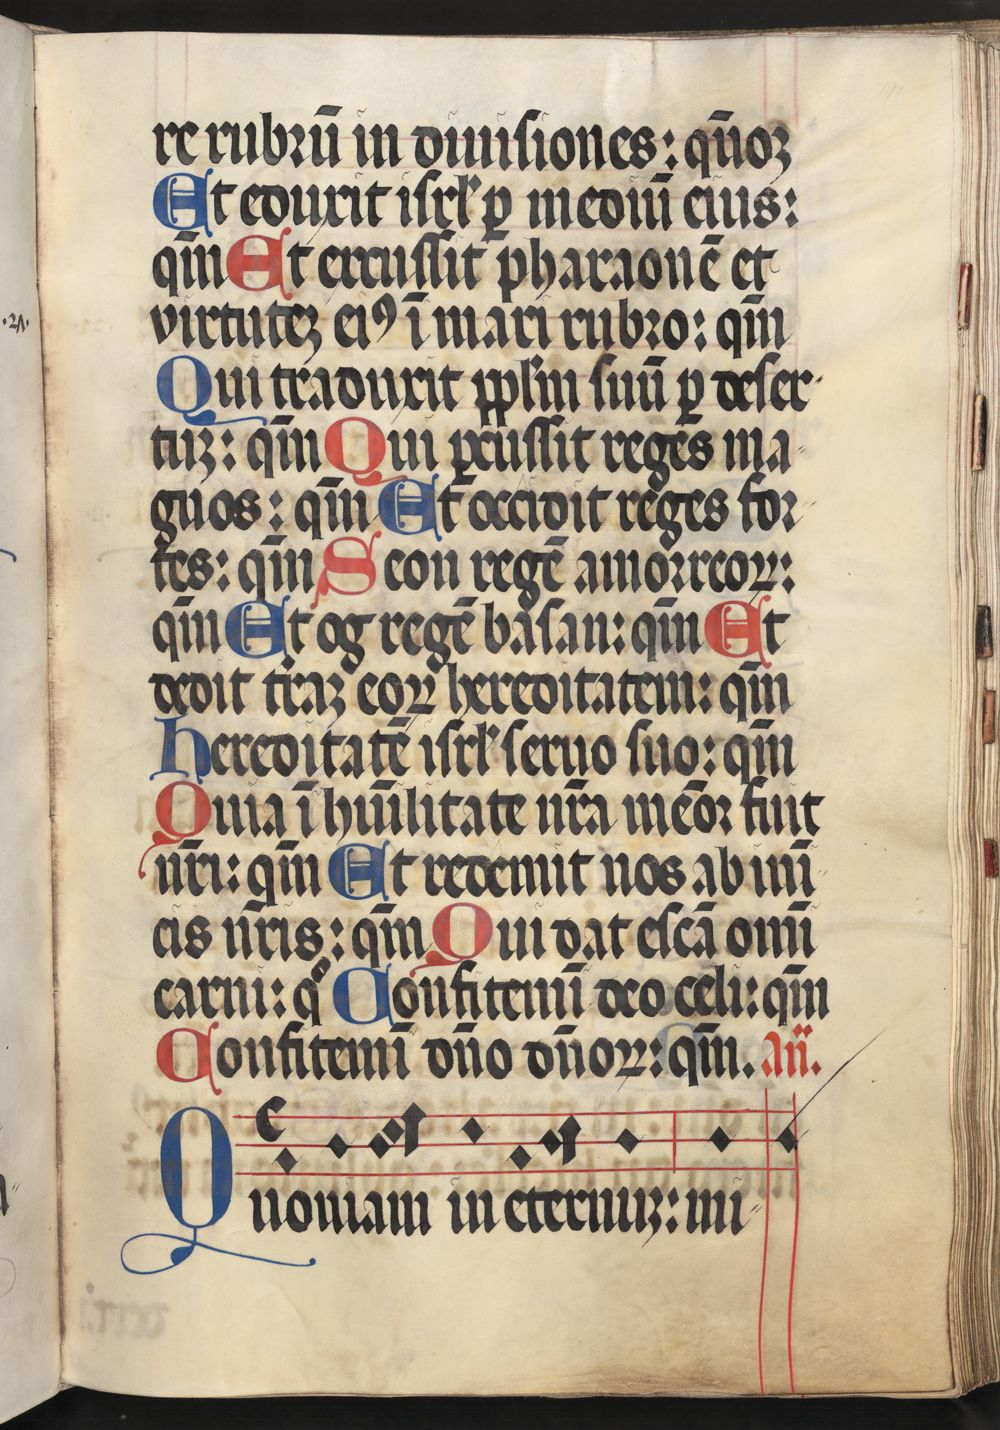 re rubrū in diuisiones: qūoꝫ
Et eduxit isrł ꝑ mediū eius:
qm̄ Et excussit pharaonē et
virtuteꝫ eiꝰ ī mari rubro: qm̄
Qui traduxit pplm̄ suū ꝑ deser-
tuꝫ: qm̄ Qui ꝑcussit reges ma-
gnos: qm̄ Et occidit reges for-
tes: qm̄ Seon regē amorreoꝝ:
qm̄ Et og regē basan: qm̄ Et
dedit tr̄aꝫ eoꝝ hereditatem: qm̄
hereditatē isrł seruo suo: qm̄
Quia ī hūilitate nr̄a mēor fuit
nr̄i: qm̄ Et redemit nos ab inī
cis nr̄is: qm̄ Qui dat escā omī
carni: qm̄ Confitemī deo celi: qm̄
Confitemī dn̄o dn̄oꝝ: qm̄. an̄.
Quoniam in eternuꝫ: mi-